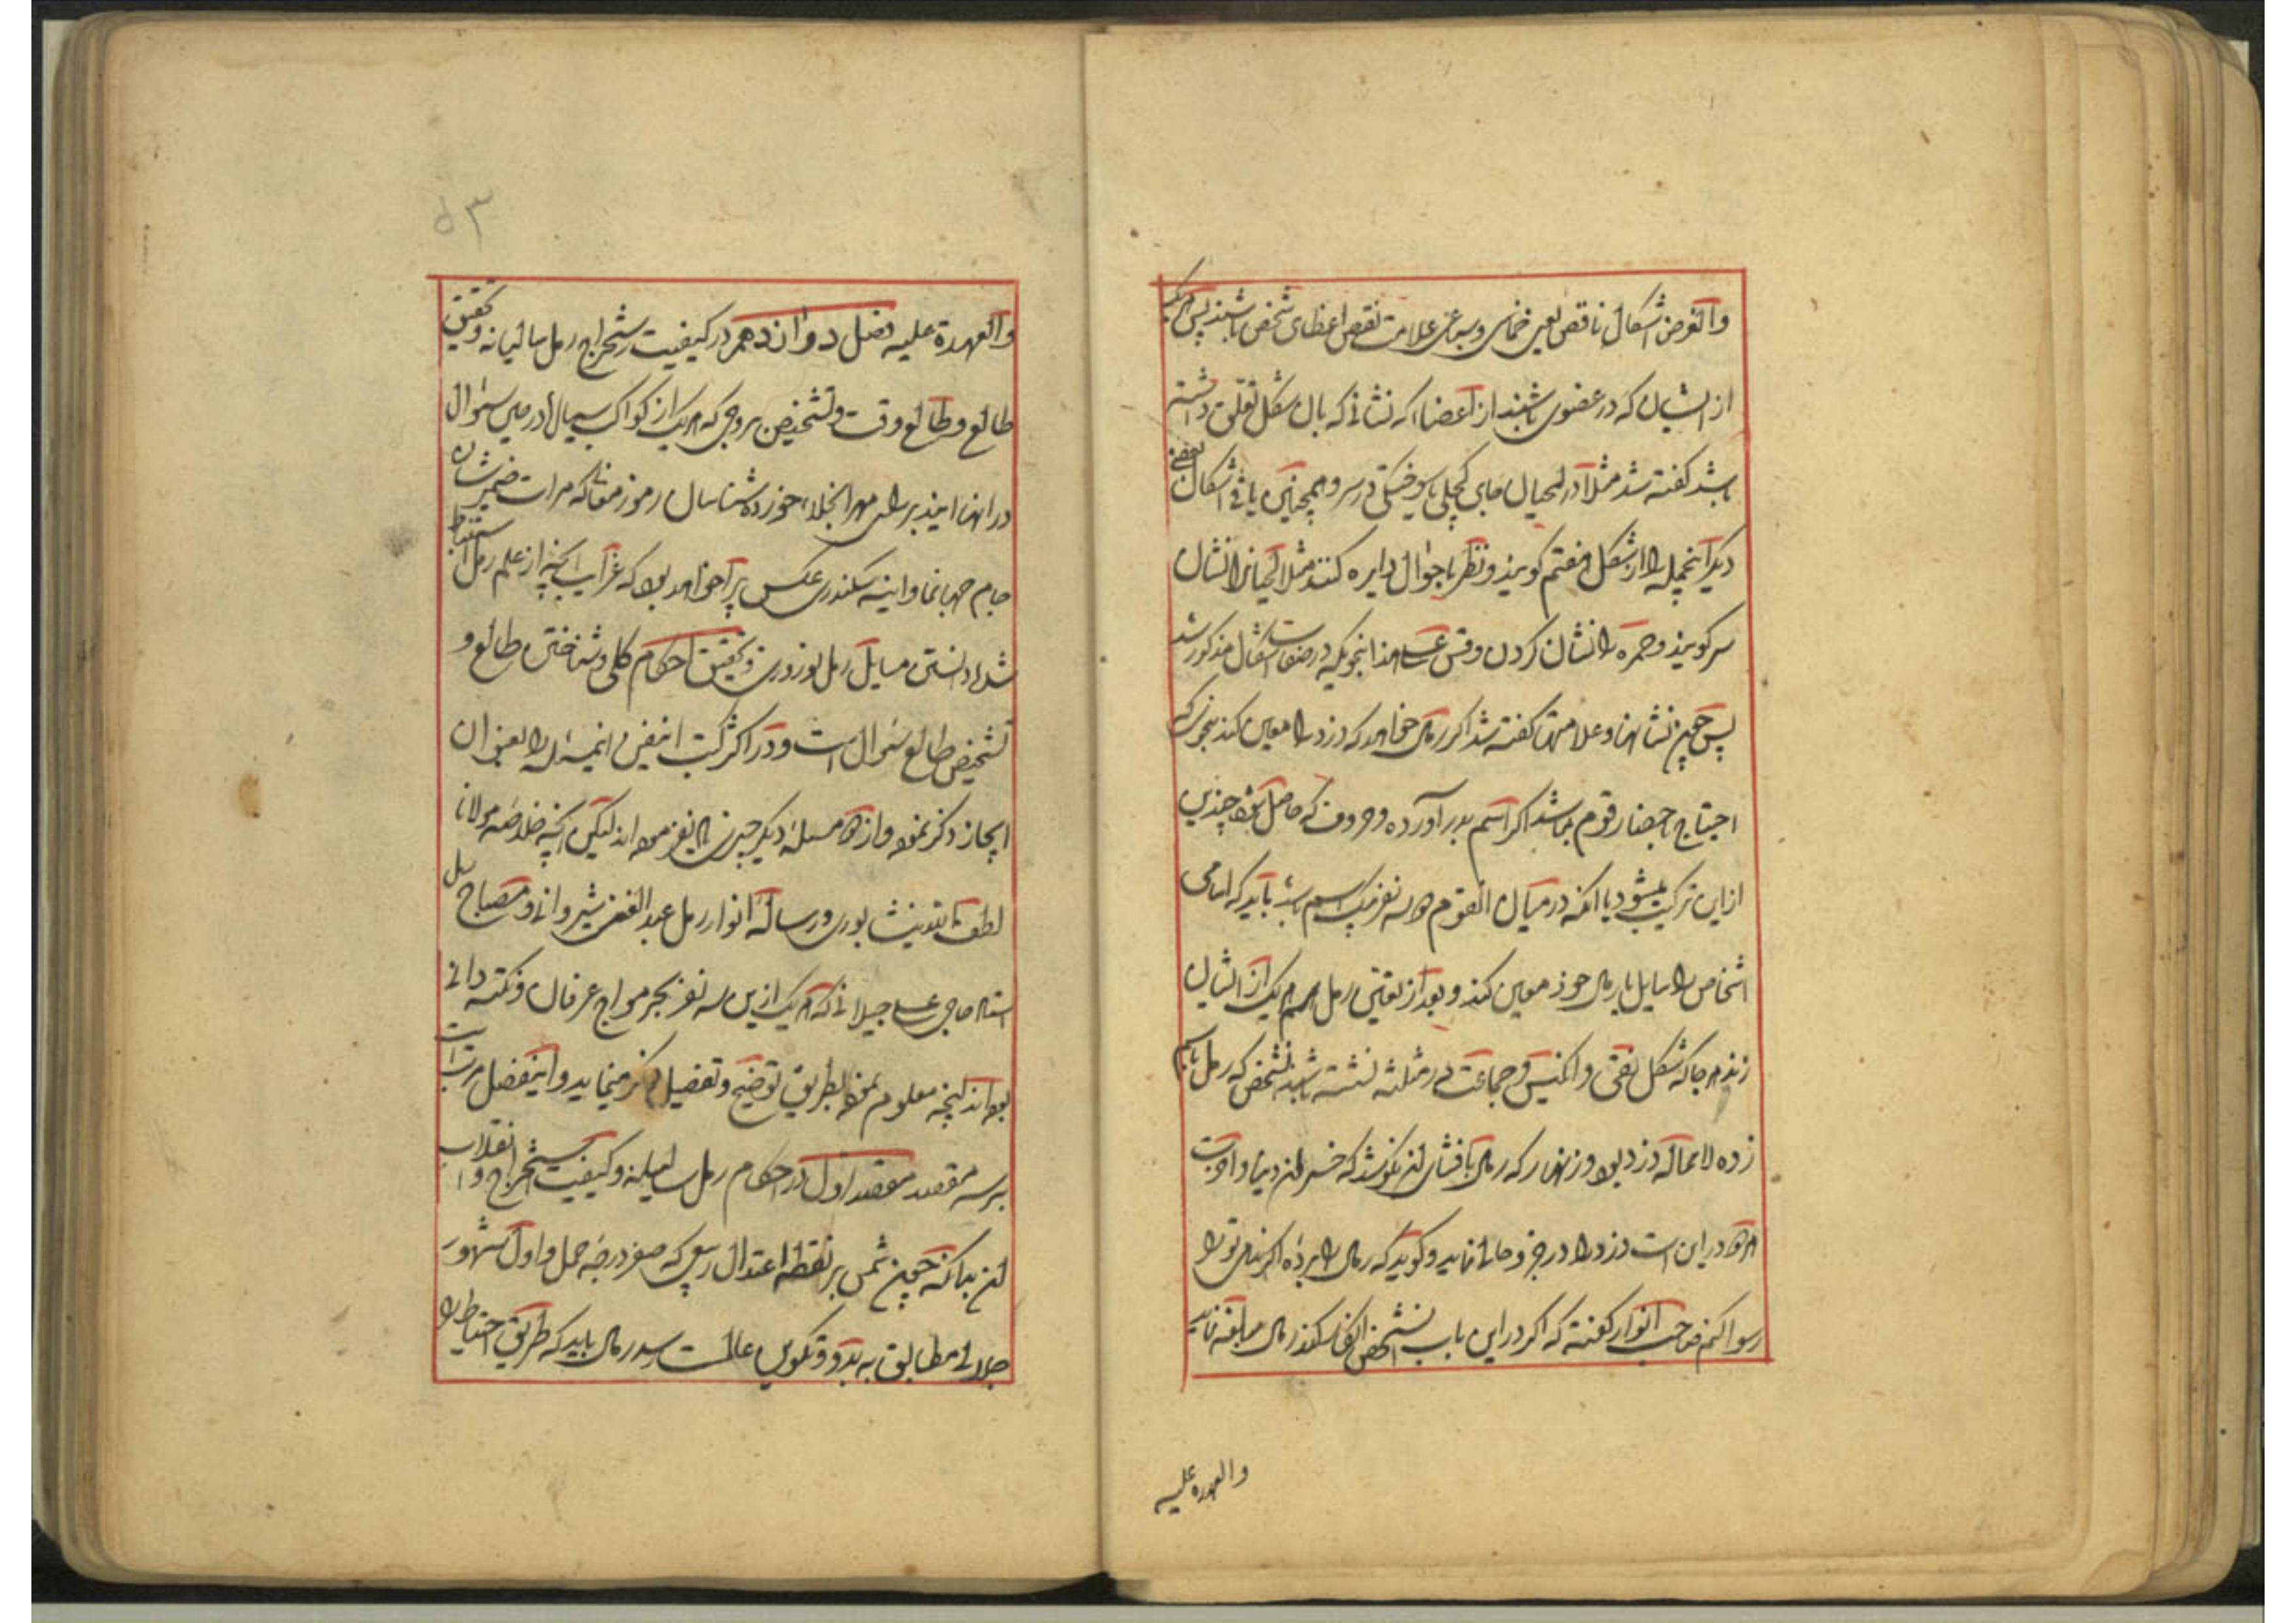 والغرض اشکال ناقص یعنی خماسی و سباعی علامت نقص اعظای شخص باشند پس هر یک
از ایشان که در عضوی باشند از اعضا که نشانی که بان شکل تعلق داشته
باشد گفته شد مثلا در لحیان جای کچلی یا سوختکی در سر و همچنین باقی اشکال بعضی
دیگر اینجمله را از شکل هفتم کویند و نظر باحوال دایره کنند مثلا لحیانرا نشان
سر کویند و حمره را نشان کردن و قس علی هذا بنحویکه در صفات اشکال مذکور شد
پس چون نشانها و علامتها گفته شد اگر رمال خواهد که دزد را معین کند بنحوی که
احتیاج باحضار قوم نباشد اگر اسم بدر آورده و حروف که حاصل چندین
از این ترکیب میشود یا انکه در میان القوم دو سه نفر یک اسم باشد باید که اسامی
اشخاص را سایل با رمال خود معین کند و بعد از تعین رمل باسم هر یک از ایشان
زند هر جا که شکل نقی و انکیس و جماعت در مثلثه نشسته باشد شخص که رمل باسم
زده لامحاله دزد بود و زنهار که رمال بافشای ان نکوشد که خسران دنیا و آخرت
در این است دزد را در خفیه نماید و کوید که رمال را برده اگر نه ترا
رسوا کنم صاحب انوار کفته که اکر در این باب شخص رمال مبالغه نماید
والعهده علیه
۵۳
والعهدة علیه فصل دوازدهم در کیفیت استخراج رمل سالیانه و تحقیق
طالع و طالع وقت و تشخیص بروجی که هر یک از کواکب سیاره در حین سؤال
در انها ایند بر رای مهر انجلای خورده شناسان رموز معنی که مرات ضمیرشان
جام جهانما و اینه سکندری عکس پیرا خواهد بود که غرایب آنچه از علم رمل استنباط
شده دانستن مسایل رمل نوروزی و تحقیق احکام کلی و شناختن طالع و
تشخیص طالع سؤال است و در اکثر کتب اینفن اینمسئله را بعنوان
ایجاز ذکر نموده و از مسئله دیگر چیزی نفرموده اند لیکن آنچه خلاصه مولانا
لطف الله نیشابوری و رساله انوار رمل عبدالغنی شیروانی و مصباح رمل
استاد حاجی علی جیلانی که هر یک ازین سه نفر بحر مواج عرفان و نکته دانی
بوده اند آنچه معلوم نموده بطریق توضیح و تفصیل ذکر مینماید و اینفصل مرتب است
بر سه مقصد مقصد اول در احکام رمل سالیانه و کیفیت استخراج و انقلاب
ان بدانکه چون شمس بر نقطه اعتدال ربیعی که صفر درجه حمل و اول شهور
جلالی مطابق به بدو و تکوین عالمست رسد رمال باید که طریق احتیاط را